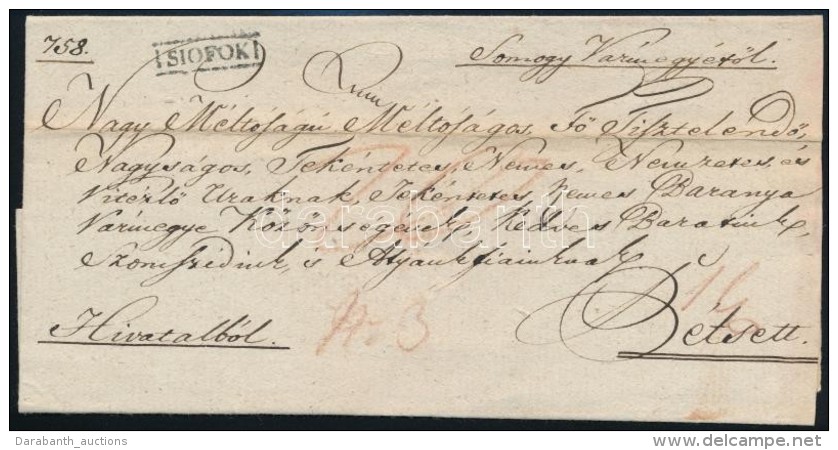 758.
SIOFOK
Somogy Vármegyéről.
Nagy Méltóságú Méltóságos, Fő Tisztelendő,
Nagyságos, Tekéntetes, Nemes, Nemzetes, és
Vitézlő Uraknak, Tekéntetes Nemes Baranya
Vármegye Közönségének, Kedves Barátink,
Szomszédink, s Atyánkfiainknak
Hivatalból.
No 3
Pétsett.
darabanth
Darabanth_auctions
www.delcampe.net